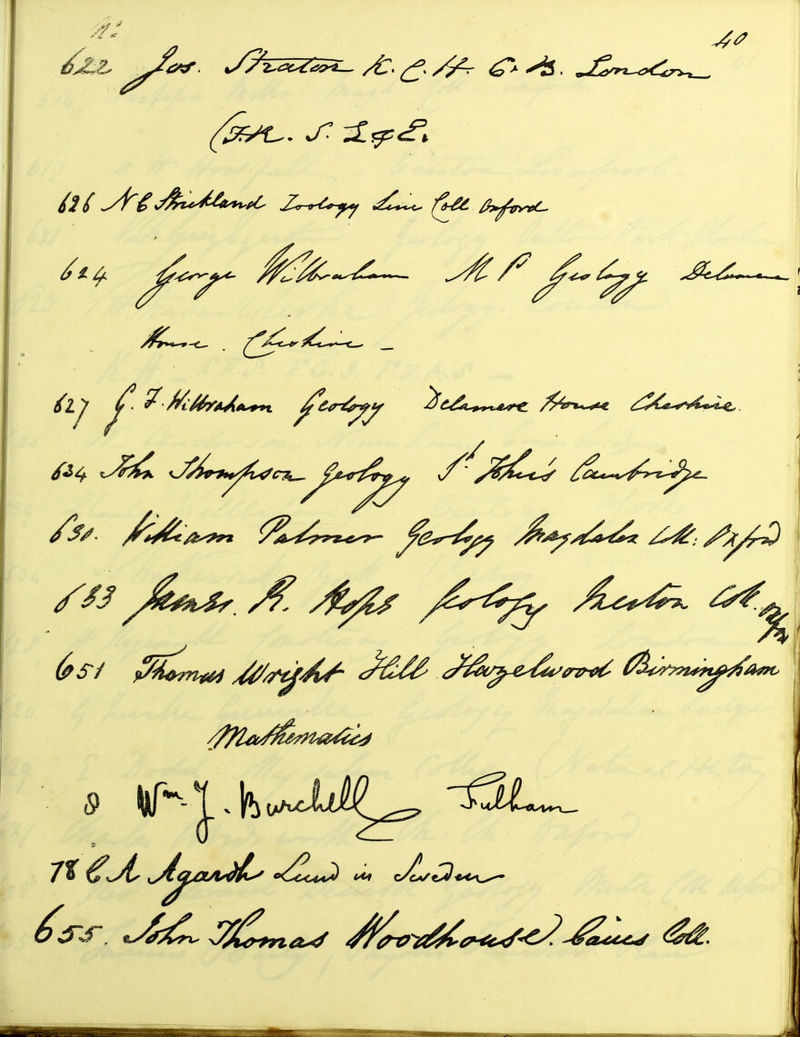 No
40
622 Jos. Straton K. C. H. C. B. London
(F.R. S. L & E.
626 N E Strickland Zoology Linc Coll Oxford
624 George Wilbraham M P Geology Delamere
House. Cheshire -
627 G. F. Wilbraham Geology Delamere House Cheshire.
634 John Thompson Geology St John's Cambridge
630. William Palmer Geology Magdalen Coll: Oxford
633 James. R. Hope Geology Merton Coll. Oxfor
651 Thomas Wright Hill Hazelwood Birmingham
Mathematics
8 Wm. J. Burchell Fulham
78 C A Agardh Lund in Sweden
655. John Thomas Woodhouse. Caius Coll.